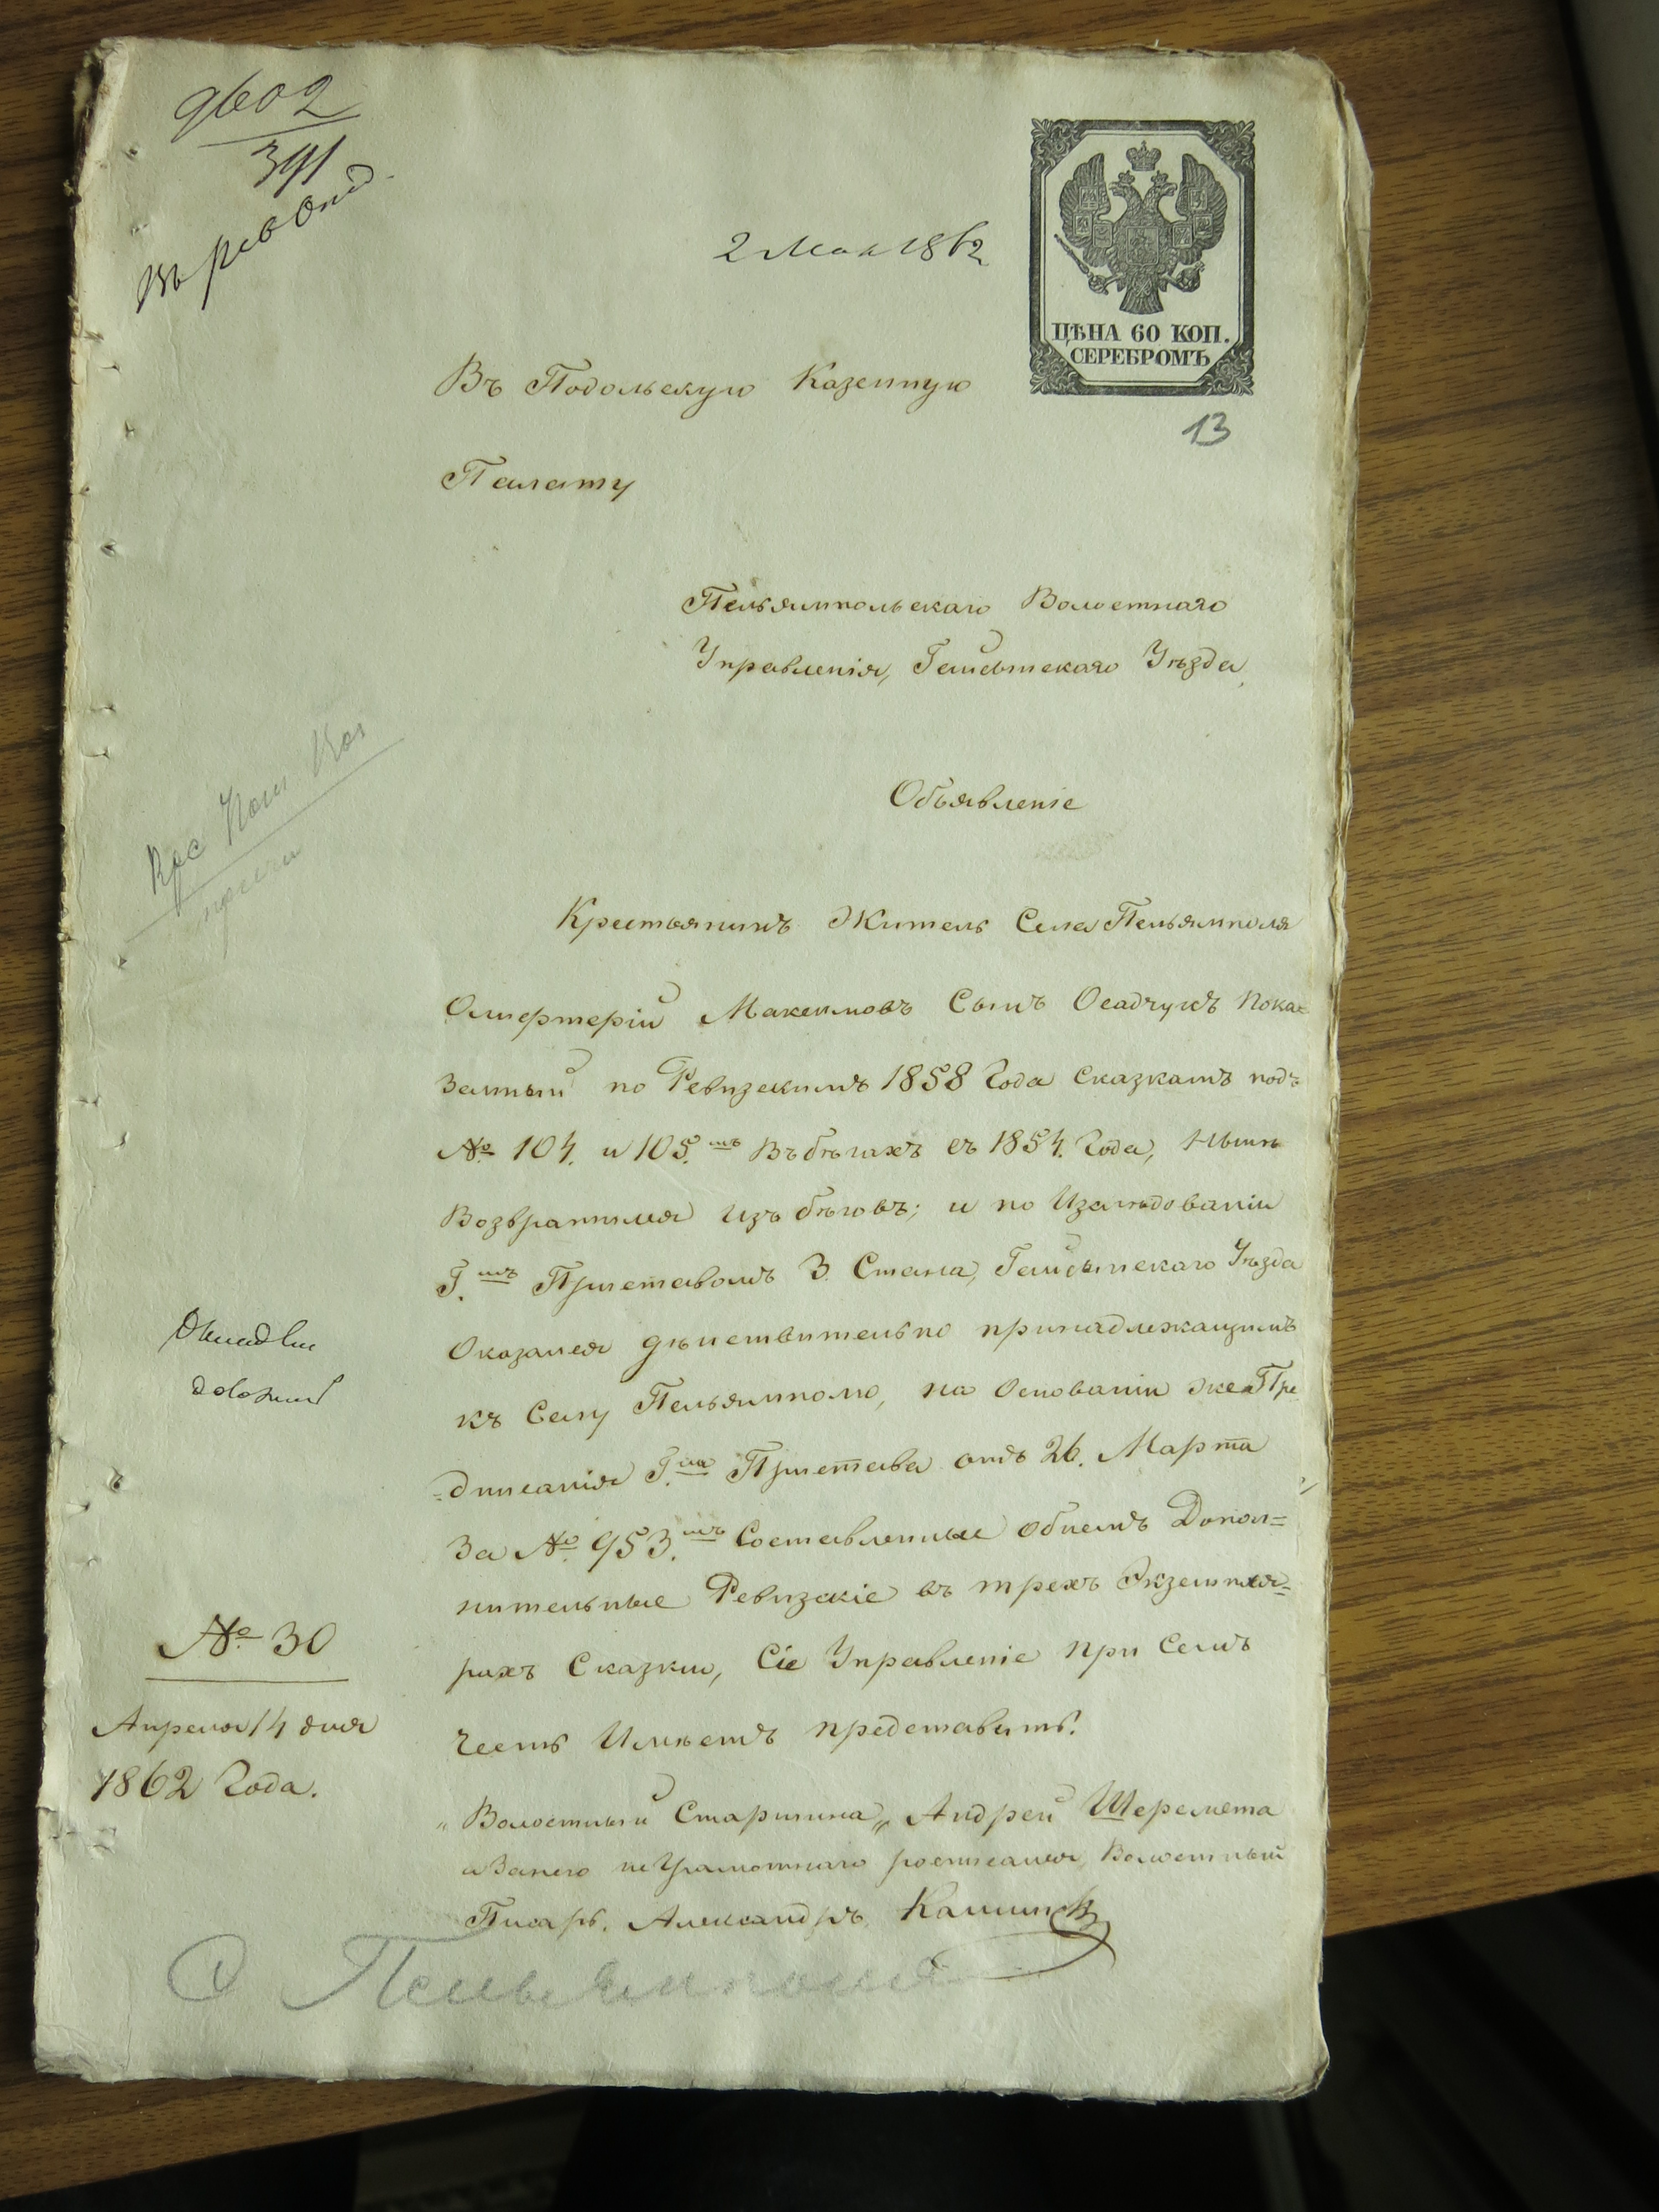 9602
391
2 Мая 1862
ЦѢНА 60 КОП.
СЕРЕБРОМЪ
13
Въ Подольскую Казенную
Палату
Пеньямпольскаго Волостнаго
Управленія, Гайсынскаго Уѣзда,
Объявленіе
Крестьянинъ Житель Села Пеньямполя
Максимовъ Сынъ Осадчукъ пока=
занный по Ревизскимъ 1858 Года Сказкамъ подъ
№ 104. и 105.мъ Въ бѣгахъ съ 1854. Года, Нынѣ
Возвратился изъ бѣговъ; и по Изслѣдованіи
Г.мъ Приставомъ 3. Стана, Гайсынскаго Уѣзда
Оказался дѣйствительно принадлежащимъ
къ Селу Пеньямполю, на Основаніи же Пре
=дписанія Г.на Пристава отъ 26. Марта
За № 953.мъ Составленные объ немъ Допол=
нительные Ревизскіе въ трехъ Экземпля=
рахъ Сказки, Сіе Управленіе при Семъ
честь Имѣетъ представить.
№ 30
Апреля 14 дня
1862 Года.
„Волостный Старшина„ Андрей Шеремета
а За него неграмотнаго росписался Волостный
Писарь. Александръ
С Пеньямполя